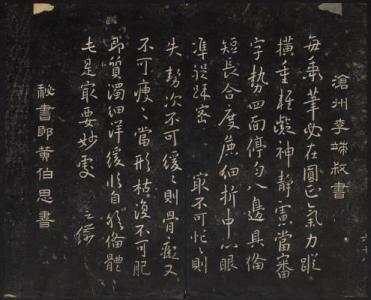 滄州李端叔書
每秉筆必在圓正氣力縱
橫重輕凝神靜慮當審
字勢四面停勻八邊具備
短長合度麁細折中心眼
準程疎密 最不可忙〻則
失勢次不可緩〻則骨癡又
不可瘦〻當形枯復不可肥
即質濁細詳緩臨自然備體
此是最要妙處 之儀
秘書郎黃伯思書